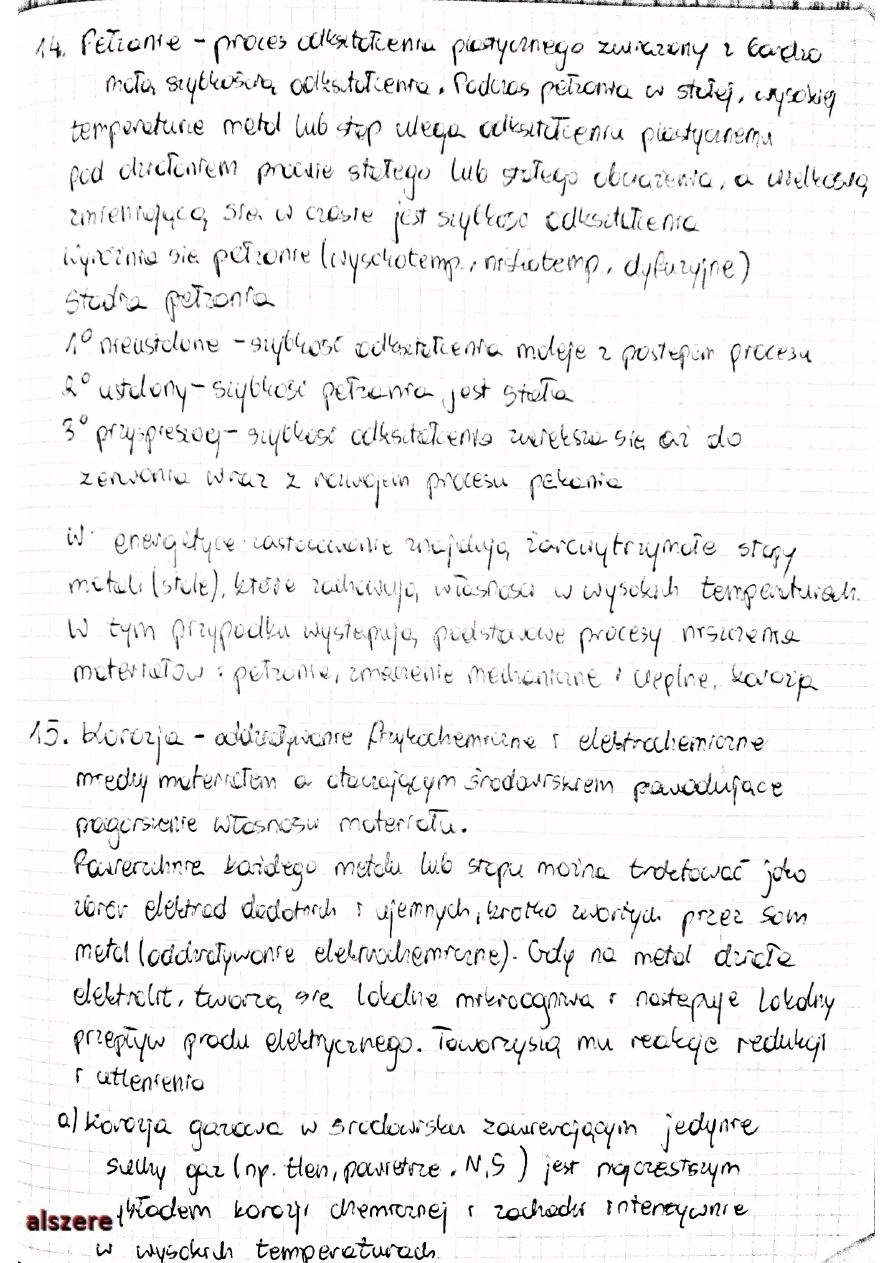 14. Pełzanie – proces odkształcenia plastycznego związany z bardzo
małą szybkością odkształcenia. Podczas pełzania w stałej, wysokiej
temperaturze metal lub stop ulega odkształceniu plastycznemu
pod działaniem prawie stałego lub stałego obciążenia, a wielkością
zmieniającą się w czasie jest szybkość odkształcenia
Wyróżnia się pełzanie (wysokotemp., niskotemp., dyfuzyjne)
Stadia pełzania
1° nieustalone – szybkość odkształcenia maleje z postępem procesu
2° ustalony – szybkość pełzania jest stała
3° przyspieszonej – szybkość odkształcenia zwiększa się aż do
zerwania wraz z rozwojem procesu pękania
W energetyce zastosowanie znajdują żarowytrzymałe stopy
metali (stale), które zachowują własności w wysokich temperaturach.
W tym przypadku występują podstawowe procesy niszczenia
materiałów: pełzanie, zmęczenie mechaniczne i cieplne, korozja
15. Korozja – oddziaływanie fizykochemiczne i elektrochemiczne
między materiałem a otaczającym środowiskiem powodujące
pogorszenie własności materiału.
Powierzchnie każdego metalu lub stopu można traktować jako
zbiór elektrod dodatnich i ujemnych, krótko zwartych przez sam
metal (oddziaływanie elektrochemiczne). Gdy na metal działa
elektrolit, tworzą się lokalne mikroogniwa i następuje lokalny
przepływ prądu elektrycznego. Towarzyszą mu reakcje redukcji
i utlenienia
a) Korozja gazowa w środowisku zawierającym jedynie
suchy gaz (np. tlen, powietrze, N, S) jest najczęstszym
alszere kładem korozji chemicznej i zachodzi intensywnie
w wysokich temperaturach